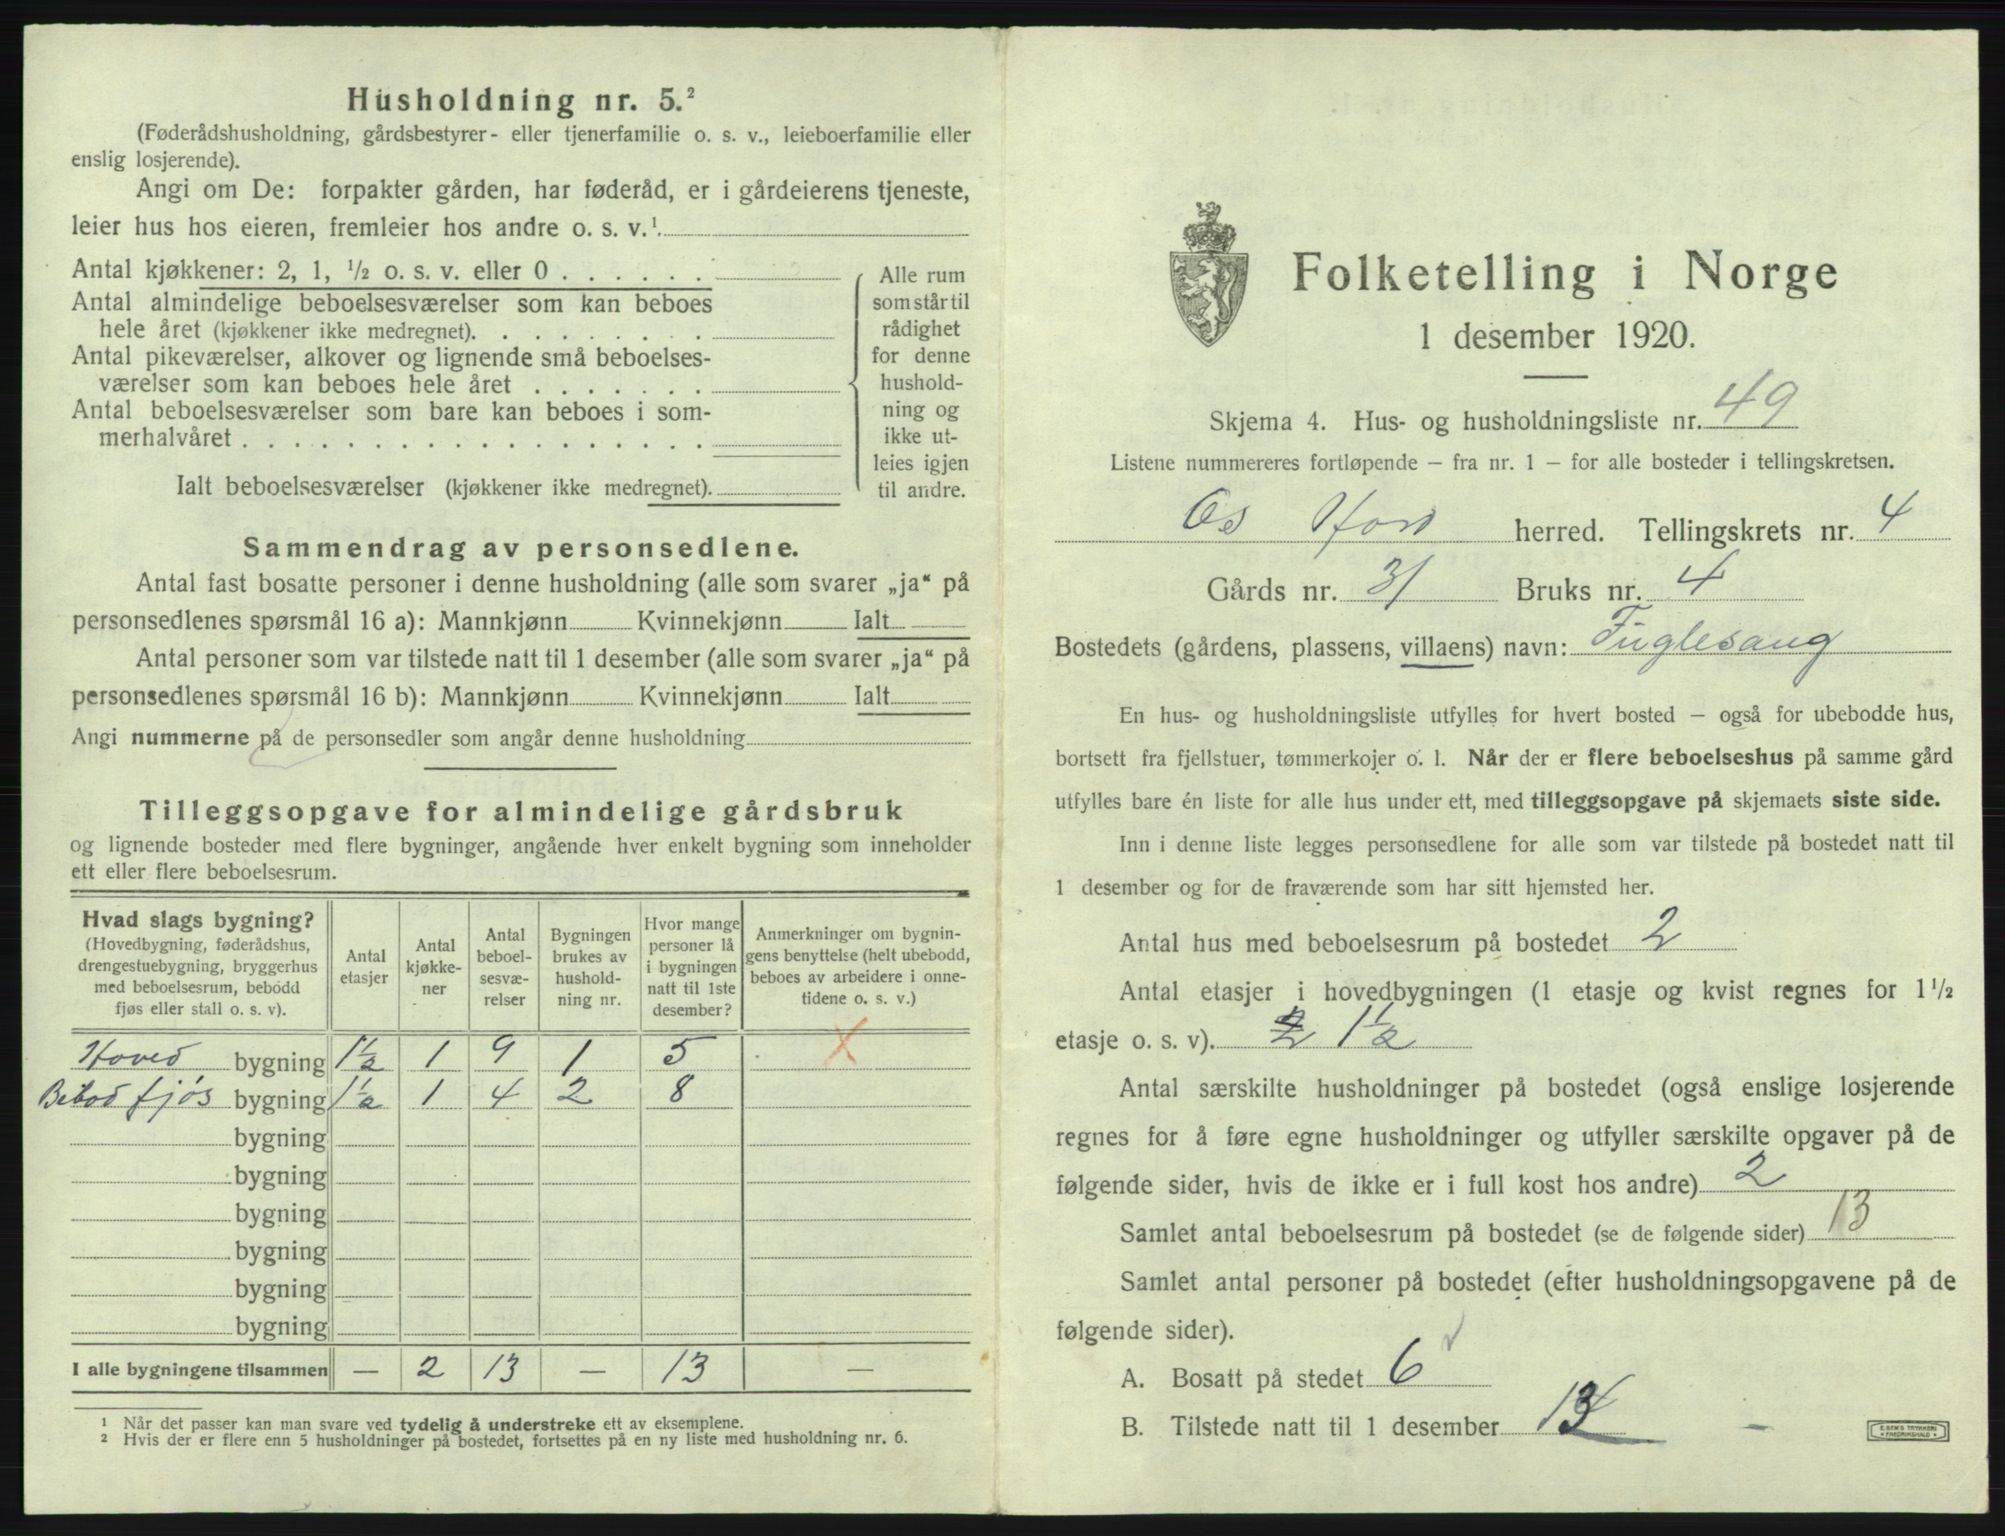 Husholdning nr. 5.²
(Føderådshusholdning, gårdsbestyrer- eller tjenerfamilie o. s. v., leieboerfamilie eller
enslig losjerende).
Angi om De: forpakter gården, har føderåd, er i gårdeierens tjeneste,
leier hus hos eieren, fremleier hos andre o. s. v.¹
Antal kjøkkener: 2, 1, ½ o. s. v. eller 0 . . . . . .
Antal almindelige beboelsesværelser som kan beboes
hele året (kjøkkener ikke medregnet). . . . . . . . .
Antal pikeværelser, alkover og lignende små beboelses-
værelser som kan beboes hele året . . . . . . .
Antal beboelsesværelser som bare kan beboes i som-
merhalvåret . . . . . . . . . . . . . . . . . .
Ialt beboelsesværelser (kjøkkener ikke medregnet).
Alle rum
som står til
rådighet
for denne
hushold-
ning og
ikke ut-
leies igjen
til andre.
Sammendrag av personsedlene.
Antal fast bosatte personer i denne husholdning (alle som svarer „ja“ på
personsedlenes spørsmål 16 a): Mannkjønn Kvinnekjønn Ialt
Antal personer som var tilstede natt til 1 desember (alle som svarer „ja“ på
personsedlenes spørsmål 16 b): Mannkjønn Kvinnekjønn Ialt
Angi nummerne på de personsedler som angår denne husholdning
Tilleggsopgave for almindelige gårdsbruk
og lignende bosteder med flere bygninger, angående hver enkelt bygning som inneholder
ett eller flere beboelsesrum.
Hvad slags bygning?
(Hovedbygning, føderådshus,
drengestuebygning, bryggerhus
med beboelsesrum, bebodd
fjøs eller stall o. s. v).
Antal
etasjer
Antal
kjøkke-
ner
Antal
beboel-
sesvæ-
relser
Bygningen
brukes av
hushold-
ning nr.
Hvor mange
personer lå
i bygningen
natt til 1ste
desember?
Anmerkninger om bygnin-
gens benyttelse (helt ubebodd,
beboes av arbeidere i onne-
tidene o. s. v.)
Hoved bygning 1½ 1 9 1 5 X
Bebod fjós bygning 1½ 1 4 2 8
bygning
bygning
bygning
bygning
bygning
bygning
I alle bygningene tilsammen — 2 13 — 13 —
¹ Når det passer kan man svare ved tydelig å understreke ett av eksemplene.
² Hvis der er flere enn 5 husholdninger på bostedet, fortsettes på en ny liste med husholdning nr. 6.
Folketelling i Norge
1 desember 1920.
Skjema 4. Hus- og husholdningsliste nr. 49
Listene nummereres fortløpende – fra nr. 1 – for alle bosteder i tellingskretsen.
Os Hord herred. Tellingskrets nr. 4
Gårds nr. 31 Bruks nr. 4
Bostedets (gårdens, plassens, villaens) navn: Fuglesang
En hus- og husholdningsliste utfylles for hvert bosted – også for ubebodde hus,
bortsett fra fjellstuer, tømmerkojer o. l. Når der er flere beboelseshus på samme gård
utfylles bare én liste for alle hus under ett, med tilleggsopgave på skjemaets siste side.
Inn i denne liste legges personsedlene for alle som var tilstede på bostedet natt til
1 desember og for de fraværende som har sitt hjemsted her.
Antal hus med beboelsesrum på bostedet 2
Antal etasjer i hovedbygningen (1 etasje og kvist regnes for 1½
etasje o. s. v). 2 1½
Antal særskilte husholdninger på bostedet (også enslige losjerende
regnes for å føre egne husholdninger og utfyller særskilte opgaver på de
følgende sider, hvis de ikke er i full kost hos andre) 2
Samlet antal beboelsesrum på bostedet (se de følgende sider) 13
Samlet antal personer på bostedet (efter husholdningsopgavene på de
følgende sider).
A. Bosatt på stedet 6
B. Tilstede natt til 1 desember 13
E. SEM'S TRYKKERI
FREDRIKSHALD